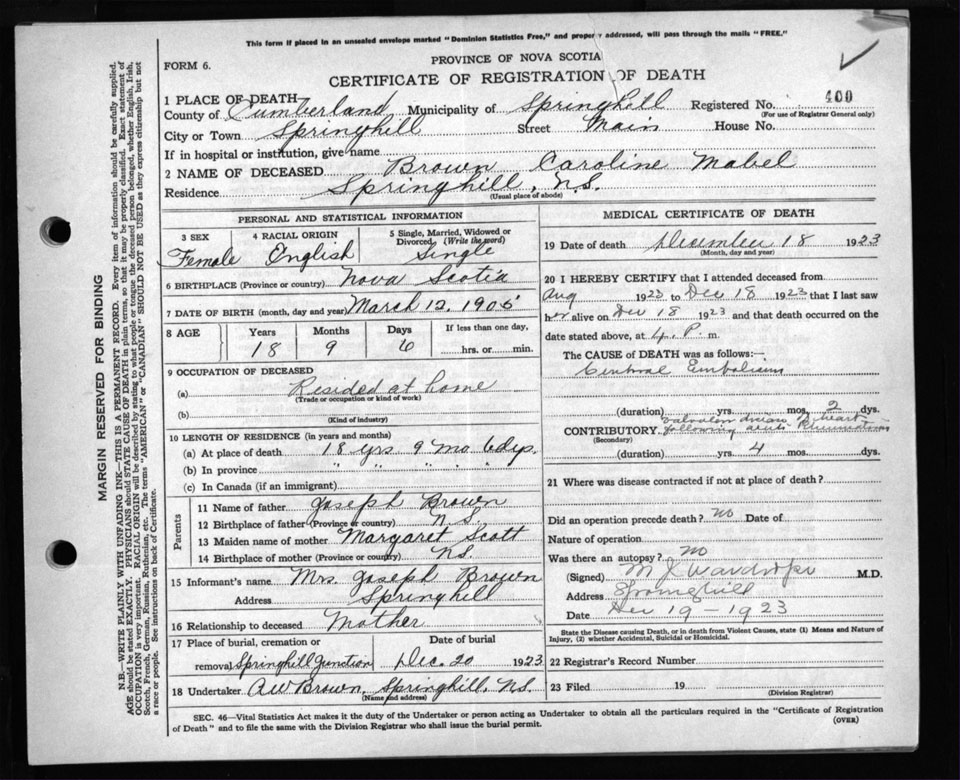 This form if placed in an unsealed envelope marked "Dominion Statistics Free," and properly addressed, will pass through the mails "FREE."
FORM 6.
PROVINCE OF NOVA SCOTIA
CERTIFICATE OF REGISTRATION OF DEATH
1 PLACE OF DEATH
County of Cumberland Municipality of Springhill Registered No. 400
(For use of Registrar General only)
City or Town Springhill Street Main House No.
If in hospital or institution, give name
2 NAME OF DECEASED Brown Caroline Mabel
Residence Springhill, N.S.
(Usual place of abode)
PERSONAL AND STATISTICAL INFORMATION
3 SEX 4 RACIAL ORIGIN 5 Single, Married, Widowed or Divorced (Write the word)
Female English Single
6 BIRTHPLACE (Province or country) Nova Scotia
7 DATE OF BIRTH (month, day and year) March 12, 1905
8 AGE Years Months Days If less than one day,
18 9 6 hrs. or min.
9 OCCUPATION OF DECEASED
(a) Resided at home
(Trade or occupation or kind of work)
(b)
(Kind of industry)
10 LENGTH OF RESIDENCE (in years and months)
(a) At place of death 18 yrs 9 mo 6 dys.
(b) In province " " " " " "
(c) In Canada (if an immigrant)
Parents
11 Name of father Joseph Brown
12 Birthplace of father (Province or country) N.S.
13 Maiden name of mother Margaret Scott
14 Birthplace of mother (Province or country) N.S.
15 Informant's name Mrs. Joseph Brown
Address Springhill
16 Relationship to deceased Mother
17 Place of burial, cremation or removal Springhill Junction Date of burial Dec. 20 1923
18 Undertaker A W Brown, Springhill, N.S.
(Name and address)
MEDICAL CERTIFICATE OF DEATH
19 Date of death December 18 1923
(Month, day and year)
20 I HEREBY CERTIFY that I attended deceased from
Aug 1923 to Dec 18 1923 that I last saw
her alive on Dec 18 1923 and that death occurred on the
date stated above, at 4. P. m.
The CAUSE of DEATH was as follows:—
Embolism
(duration) yrs. mos. 2 dys.
CONTRIBUTORY heart
(Secondary) following acute Rheumatism
(duration) yrs. 4 mos. dys.
21 Where was disease contracted if not at place of death?
Did an operation precede death? no Date of
Nature of operation
Was there an autopsy? no
(Signed) M J Wardrope M.D.
Address Springhill
Date Dec 19 - 1923
State the Disease causing Death, or in death from Violent Causes, state (1) Means and Nature of
Injury, (2) whether Accidental, Suicidal or Homicidal.
22 Registrar's Record Number
23 Filed 19
(Division Registrar)
SEC. 46—Vital Statistics Act makes it the duty of the Undertaker or person acting as Undertaker to obtain all the particulars required in the "Certificate of Registration
of Death" and to file the same with the Division Registrar who shall issue the burial permit.
(OVER)
MARGIN RESERVED FOR BINDING
N.B.—WRITE PLAINLY WITH UNFADING INK—THIS IS A PERMANENT RECORD. Every item of information should be carefully supplied.
AGE should be stated EXACTLY. PHYSICIANS should STATE CAUSE OF DEATH in plain terms, so that it may be properly classified. Exact statement of
OCCUPATION is very important. RACIAL ORIGIN will be described by stating to what people or tongue the deceased person belonged, whether English, Irish,
Scotch, French, German, Russian, Ruthenian, etc. The terms "AMERICAN" or "CANADIAN" SHOULD NOT BE USED as they express citizenship but not
a race or people. See instructions on back of Certificate.